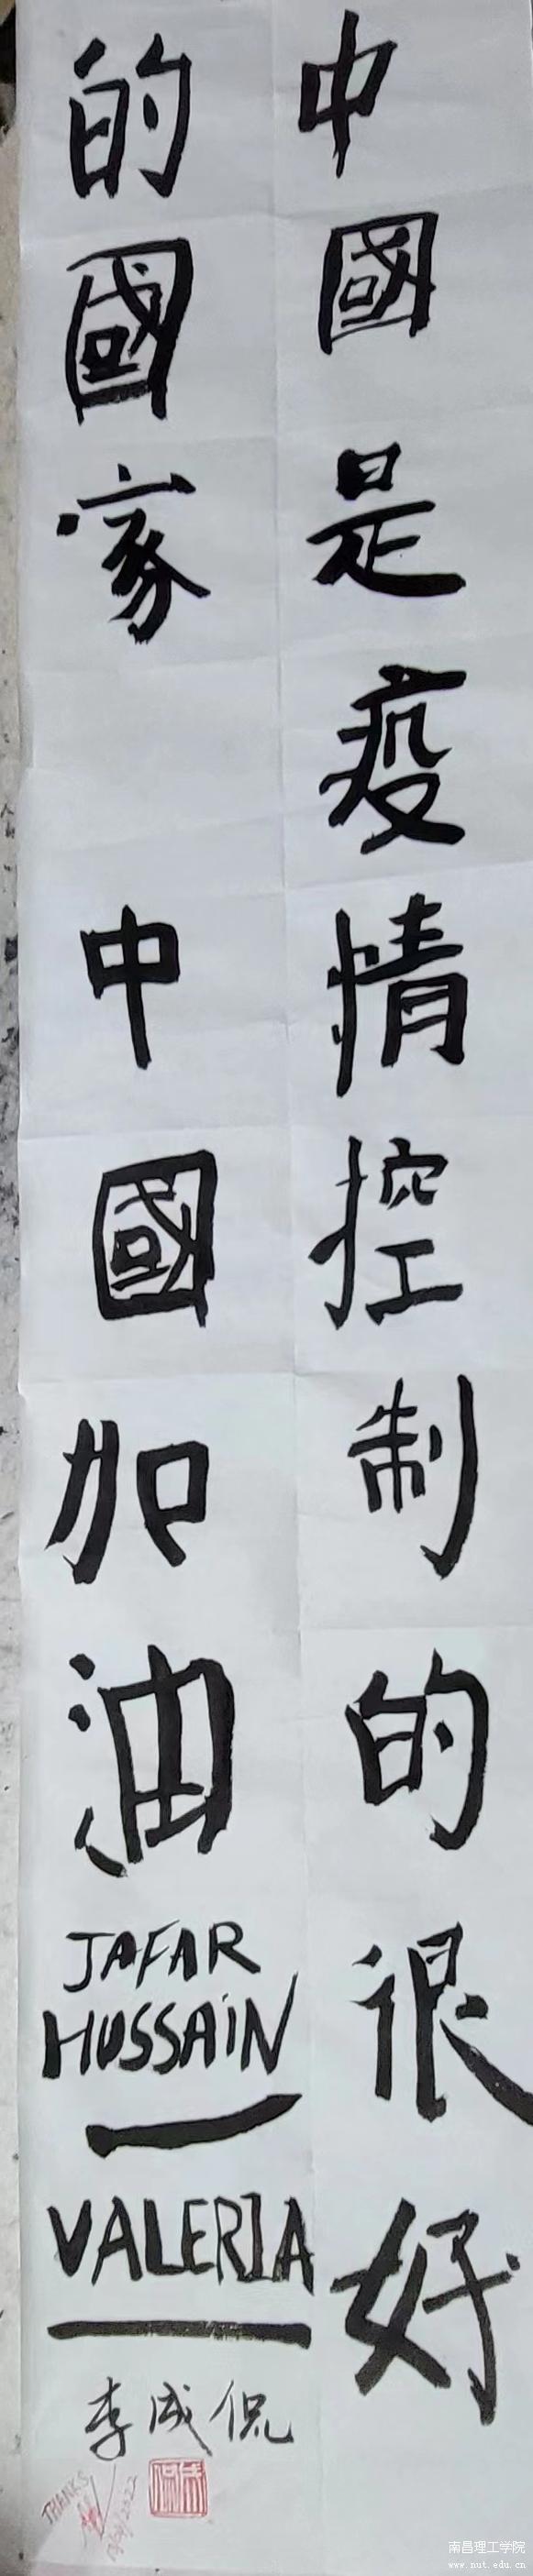 中國是疫情控制的很好
的國家 中國加油
JAFAR
HUSSAiN
VALERIA
李成侃
THANKS
南昌理工学院
www.nut.edu.cn